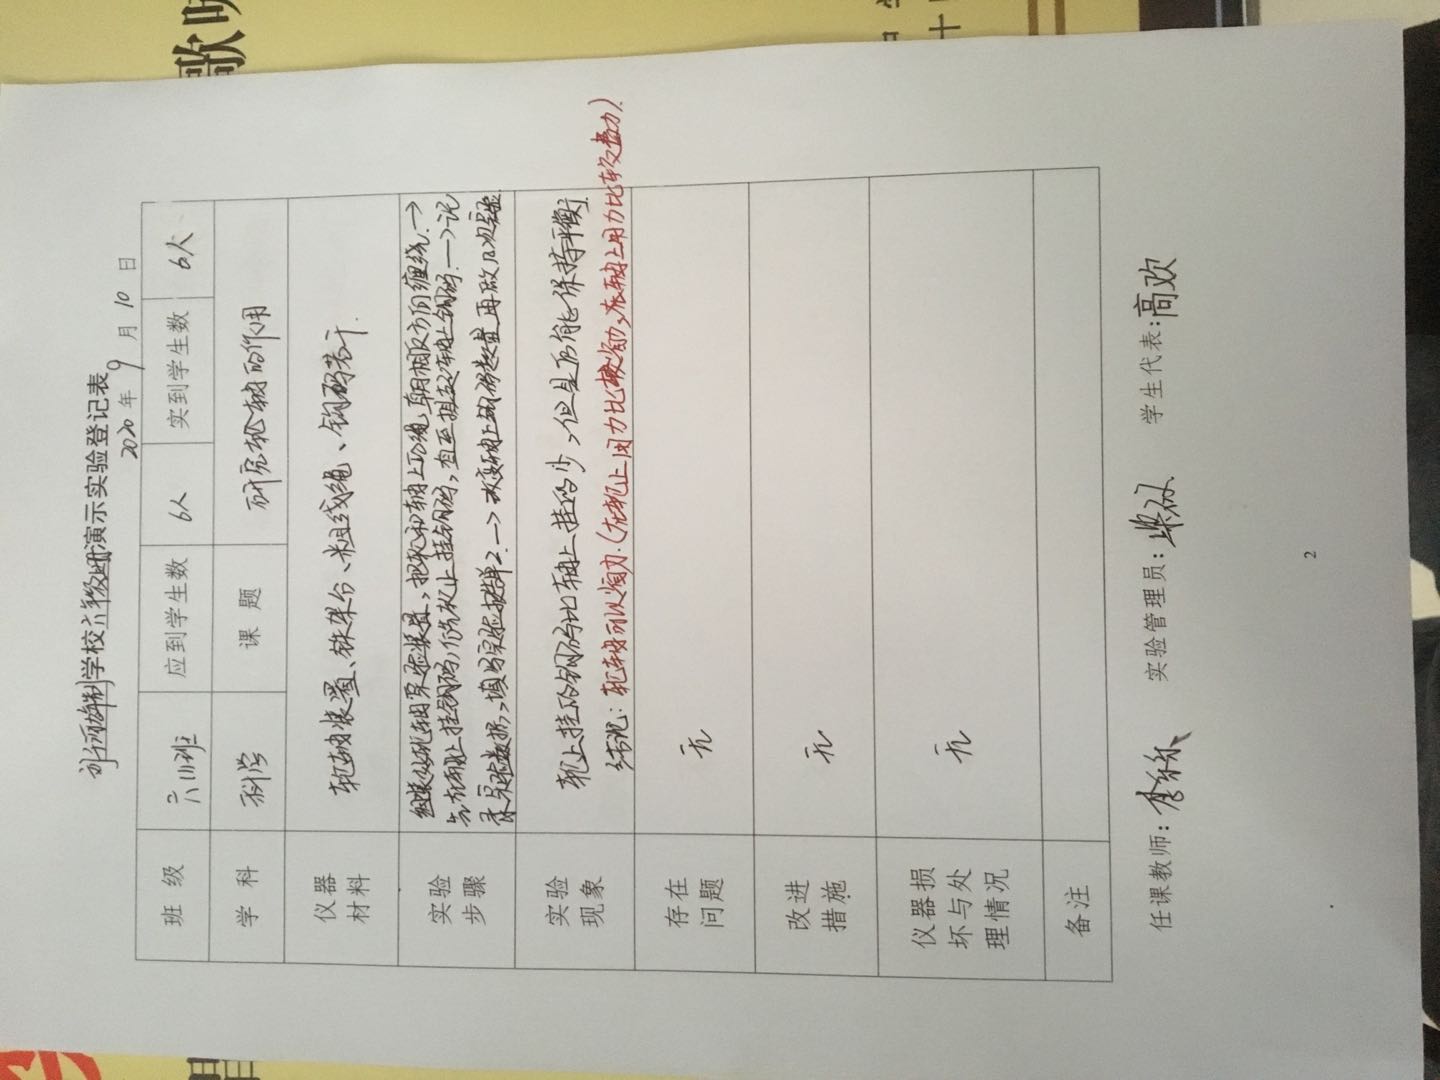 学校六年级班演示实验登记表
2020年9月10日
班级 六(1)班 应到学生数 6人 实到学生数 6人
学科 科学 课题 研究轮轴的作用
仪器材料 轮轴装置、铁架台、粗线绳、钩码若干.
实验步骤 组装好轮轴实验装置,把轮和轴上的绳朝相反方向缠绕.→
先在轴上挂钩码,然后在轮上挂钩码,直至提起轴上钩码.→记
录实验数据,填写实验报告单2.→改变轴上钩码数量再做几次实验.
实验现象 轮上挂的钩码比轴上挂的少,但是否能保持平衡
结论:轮轴可以省力.(在轮上用力比较省力,在轴上用力比较费力).
存在问题 无
改进措施 无
仪器损坏与处理情况 无
备注
任课教师: 实验管理员: 学生代表:高欢
2